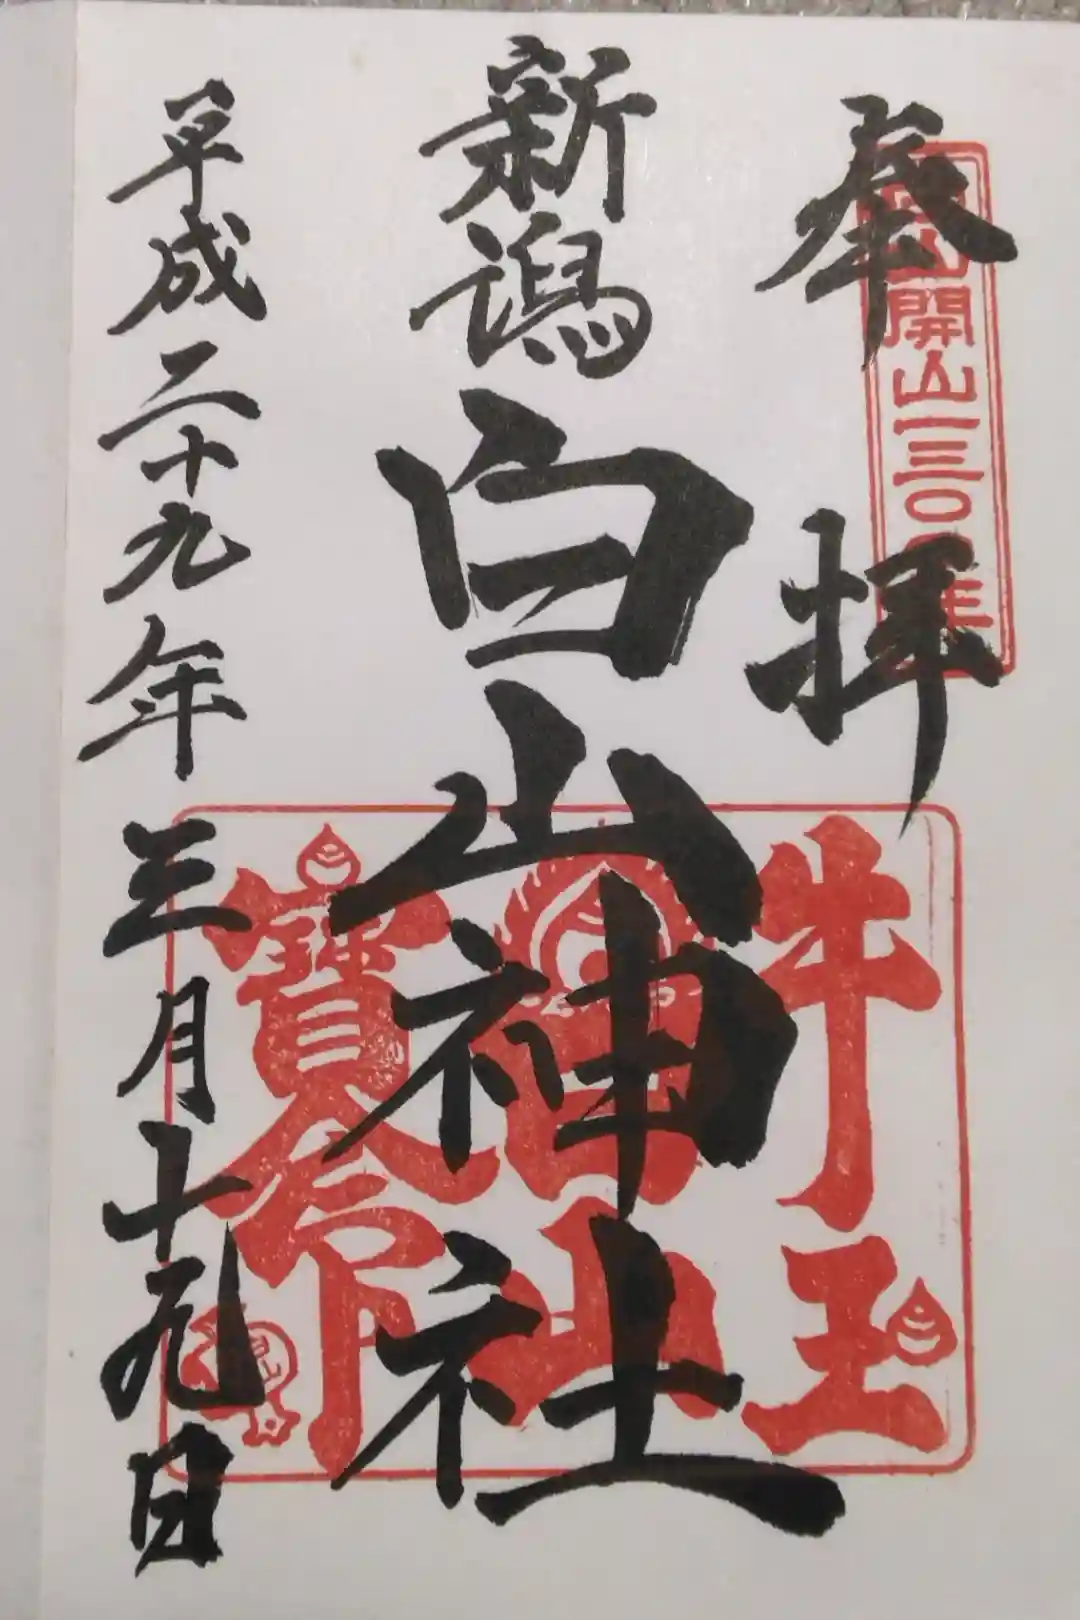 奉拝
白山開山一三〇〇年
新潟白山神社
平成二十九年三月十九日
牛王
白山
寶